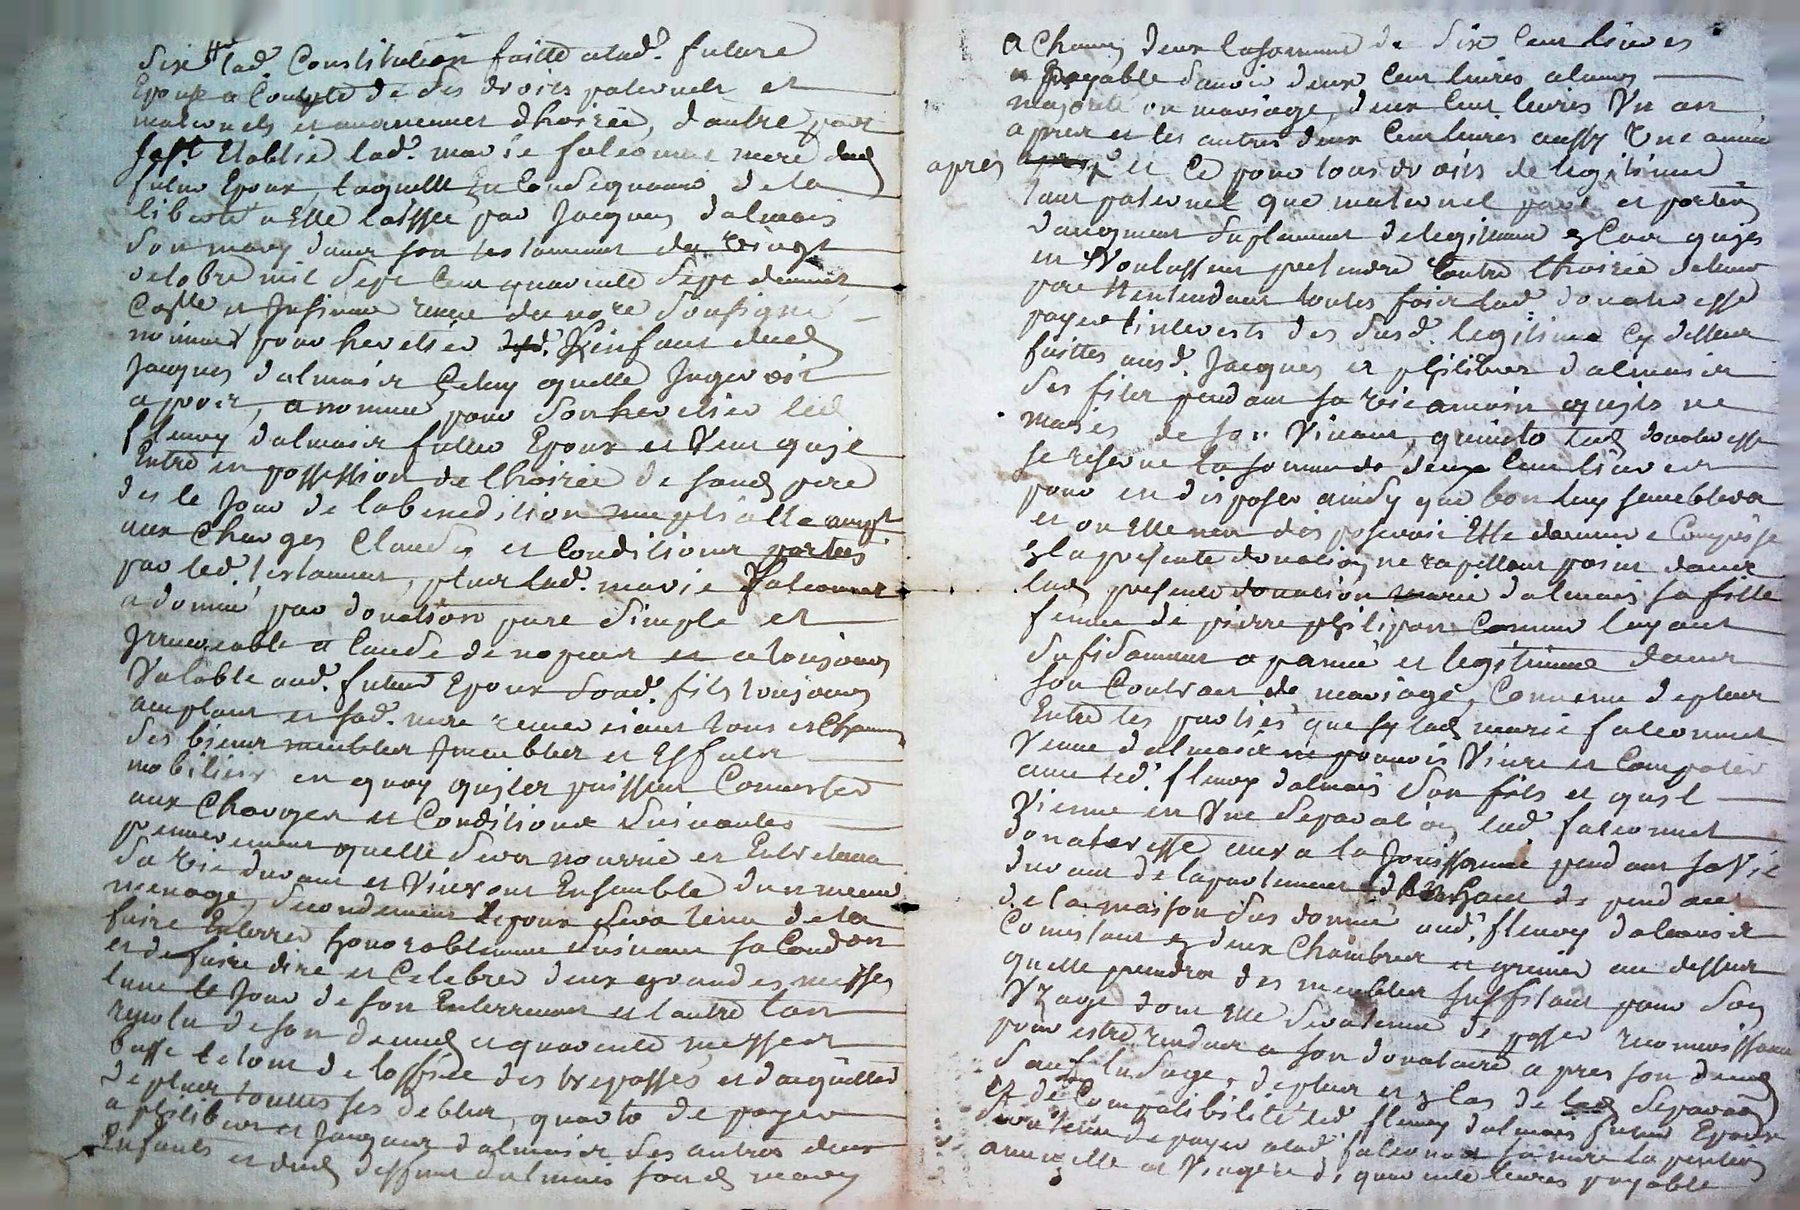 Six tt lad.e Constitution faitte alad.e future
Epouse a Compte de ses droits paternels et
maternels et avancement dhoirie, dautre part
sest Etablie lad.e marie falconnet mere dud
futur Epoux, laquelle En Consequance de la
liberté a Elle laissée par Jacques dalmais
son mary dans son testament du vingt
octobre mil sept cent quarante sept
et Insinué receu du no.re soussigné
nommer pour heretier lenfant dud
Jacques dalmais Celuy quelle Jugeroit
apropos, a nommé pour son heretier led
fleury dalmais futur Epoux et veut quil
Entre en possession de lhoirie de sond pere
des le Jour de la benediction nuptialle
aux Charges Clauses et Conditions portées
par led.t testament, plus lad.e marie falconnet
a donné par donation pure simple et
Irrevocable a Cause de noces et a toujours
Valable aud.t futur Epoux sond.t fils toujours
acceptant et sad.e mere remerciant tous et Chacuns
ses biens meubles Immeubles et Effets
mobiliers en quoy quils puissent Consister
aux Charges et Conditions suivantes
premierement quelle sera nourrie et Entretenue
sa vie durant et vivront Ensemble dun meme
menage, secondement lepoux sera tenu de la
faire Enterrer honorablement suivant sa Condon
et de faire dire et Celebrer deux grandes messes
lune le Jour de son Enterrement et lautre lan
revolu de son deced et quarante messes
basse le tout de loffice des trepassés et dacquitter
de plus touttes ses debtes, quarto de payer
a philibert et Jacques dalmais ses autres deux
Enfants et dud deffunt dalmais sond mary
a Chacun deux la somme de six cent livres
payable savoir deux cent livres a leurs
majorité ou mariage, deux cent livres Un an
apres et les autres deux cent livres aussy Une année
apres et Ce pour tous droits de legitime
tant paternel que maternel part et portion
daugment suplement de legitime et Cas quils
en Voulussent pretendre Contre lhoirie de leur
pere Nentendant toutes fois lad.e donatresse
payer linterests des susd.e legitime Cy dessus
faittes ausd.t Jacques et philibert dalmais
ses fils pendant sa vie amoin quils ne
maries de son vivant, quinto lad donatresse
se reserve la somme de deux cent livres
pour en disposer ainsy que bon luy semblera
et ou Elle nen disposeroit Elle demeure Comprise
a la presente donation, ne rapellant point dans
lad presente donation marie dalmais sa fille
femme de pierre philipon Comme layant
sufisamment apanné et legitimée dans
son Contract de mariage, Convenu de plus
Entre les parties que sy lad marie falconnet
Veuve dalmais ne pouvoit Vivre et Compatir
avec led.t fleury dalmais son fils et quil
Vienne en Une separation lad.e falconnet
donatresse aura la Jouissance pendant sa vie
durant de lapartement du haut de pendant
de la maison sus donné aud.t fleury dalmais
Consistant en deux Chambres et grenier au dessus
quelle prendra des meubles suffisant pour son
Uzage dont Elle sera tenue de passer reconnoissance
pour estre rendues a son donataire apres son deced
sauf lusage, de plus et a cas de separation
et de Compatibilité led.t fleury dalmais futur Epoux
sera tenu de payer alad.e falconnet sa mere la pension
annuelle et Viagere de quarante livres payable